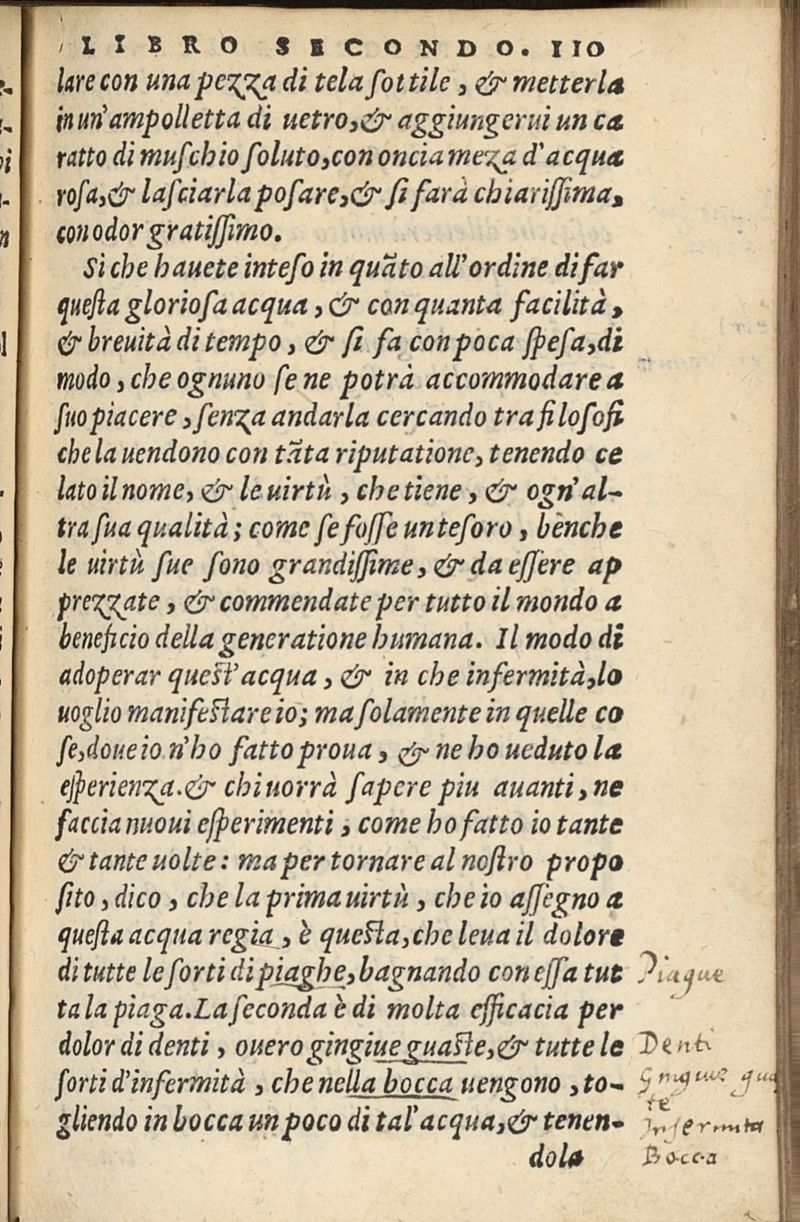 LIBRO SECONDO. 110
lare con una pezza di tela ſottile, & metterla
in un'ampolletta di uetro, & aggiungerui un ca
ratto di muſchio ſoluto, con oncia meza d'acqua
roſa, & laſciarla poſare, & ſi farà chiariſſima,
con odor gratiſſimo.
Si che hauete inteſo in quãto all'ordine di far
queſta glorioſa acqua, & con quanta facilità,
& breuità di tempo, & ſi fa con poca ſpeſa, di
modo, che ognuno ſe ne potrà accommodare a
ſuo piacere, ſenza andarla cercando tra filoſofi
che la uendono con tãta riputatione, tenendo ce
lato il nome, & le uirtù, che tiene, & ogn'al-
tra ſua qualità; come ſe foſſe un teſoro, bènche
le uirtù ſue ſono grandiſſime, & da eſſere ap
prezzate, & commendate per tutto il mondo a
beneficio della generatione humana. Il modo di
adoperar queſt'acqua, & in che infermità, lo
uoglio manifeſtare io; ma ſolamente in quelle co
ſe, doue io n'ho fatto proua, & ne ho ueduto la
eſperienza. & chi uorrà ſapere piu auanti, ne
faccia nuoui eſperimenti, come ho fatto io tante
& tante uolte: ma per tornare al noſtro propo
ſito, dico, che la prima uirtù, che io aſſegno a
queſta acqua regia, è queſta, che leua il dolore
di tutte le ſorti di piaghe, bagnando con eſſa tut
ta la piaga. La ſeconda è di molta efficacia per
dolor di denti, ouero gingiue guaſte, & tutte le
ſorti d'infermità, che nella bocca uengono, to-
gliendo in bocca un poco di tal'acqua, & tenen-
dola
Piague
Denti
Bocca